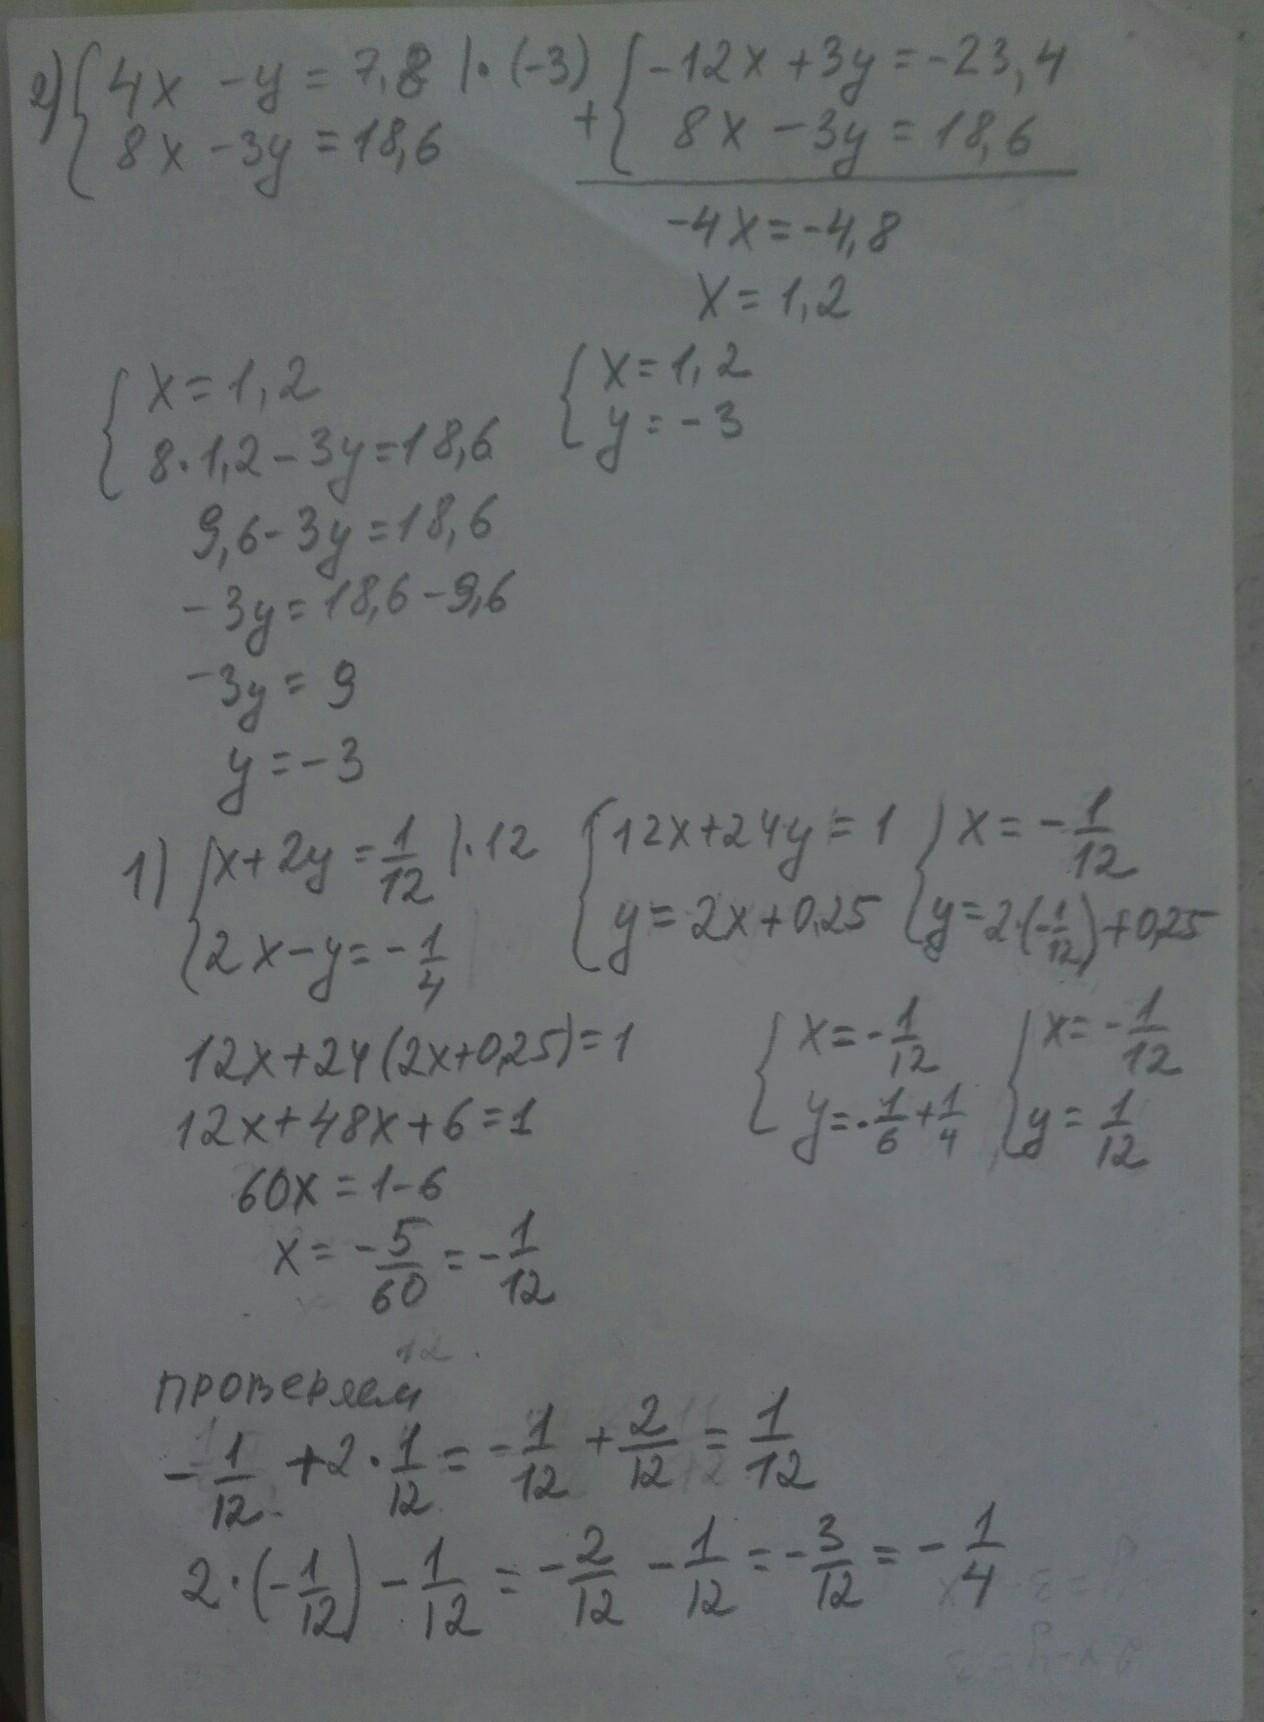 2) { 4x - y = 7,8 |·(-3)
8x - 3y = 18,6
+ { -12x + 3y = -23,4
8x - 3y = 18,6
-4x = -4,8
x = 1,2
{ x = 1,2
8·1,2 - 3y = 18,6
9,6 - 3y = 18,6
-3y = 18,6 - 9,6
-3y = 9
y = -3
{ x = 1,2
y = -3
1) { x + 2y = 1/12 |·12
2x - y = -1/4
{ 12x + 24y = 1
y = 2x + 0,25
{ x = -1/12
y = 2·(-1/12) + 0,25
12x + 24(2x + 0,25) = 1
12x + 48x + 6 = 1
60x = 1 - 6
x = -5/60 = -1/12
{ x = -1/12
y = -1/6 + 1/4
{ x = -1/12
y = 1/12
проверяем
-1/12 + 2·1/12 = -1/12 + 2/12 = 1/12
2·(-1/12) - 1/12 = -2/12 - 1/12 = -3/12 = -1/4